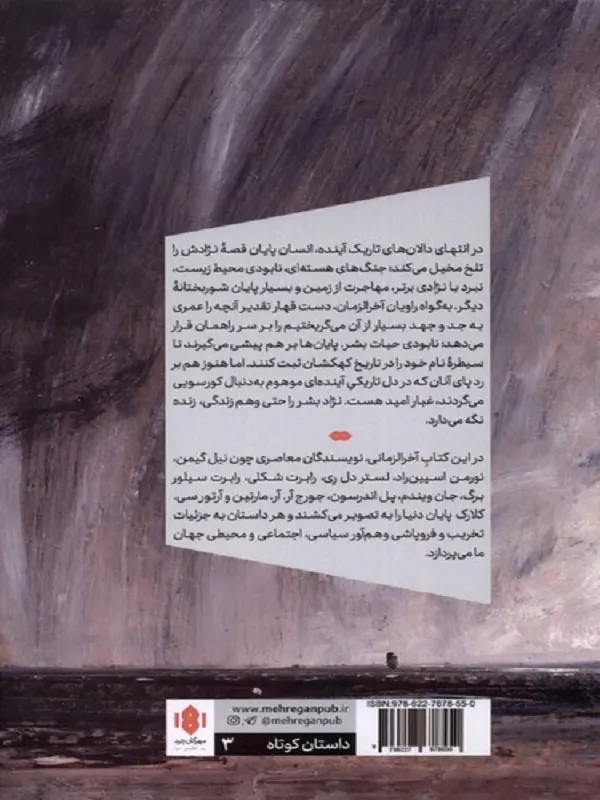 در انتهای دالان‌های تاریک آینده، انسان پایان قصهٔ نژادش را
تلخ مخیل می‌کند: جنگ‌های هسته‌ای، نابودی محیط زیست،
نبرد با نژادی برتر، مهاجرت از زمین و بسیار پایان شوربختانهٔ
دیگر. به‌گواه راویان آخرالزمان، دست قهار تقدیر آنچه را عمری
به جد و جهد بسیار از آن می‌گریختیم را بر سر راهمان قرار
می‌دهد: نابودی حیات بشر. پایان‌ها بر هم پیشی می‌گیرند تا
سیطرهٔ نام خود را در تاریخ کهکشان ثبت کنند. اما هنوز هم بر
رد پای آنان که در دل تاریکیِ آینده‌ای موهوم به‌دنبال کورسویی
می‌گردند، غبار امید هست. نژاد بشر را حتی وهم زندگی، زنده
نگه می‌دارد.
در این کتاب آخرالزمانی، نویسندگان معاصری چون نیل گیمن،
نورمن اسپین‌راد، لستر دل ری، رابرت شکلی، رابرت سیلور
برگ، جان ویندم، پل اندرسون، جورج آر. آر. مارتین و آرتور سی.
کلارک پایان دنیا را به تصویر می‌کشند و هر داستان به جزئیات
تخریب و فروپاشی وهم‌آور سیاسی، اجتماعی و محیطی جهان
ما می‌پردازد.
www.mehreganpub.ir
@mehreganpub
داستان کوتاه ۳
مهرگان خرد
ISBN: 978-622-7678-55-0